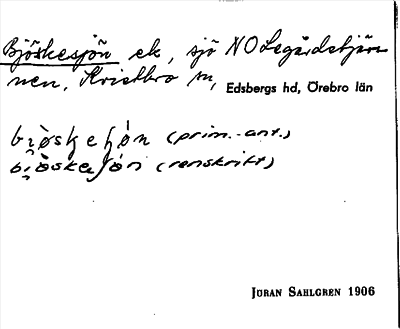 Bjöskesjön ek, sjö NO Legårdstjär-
nen, Kvistbro sn, Edsbergs hd, Örebro län
bi̯ȯskeʃȯn (prim.-ant.)
bi̯ȯskeʃȯn (renskrift)
Jöran Sahlgren 1906